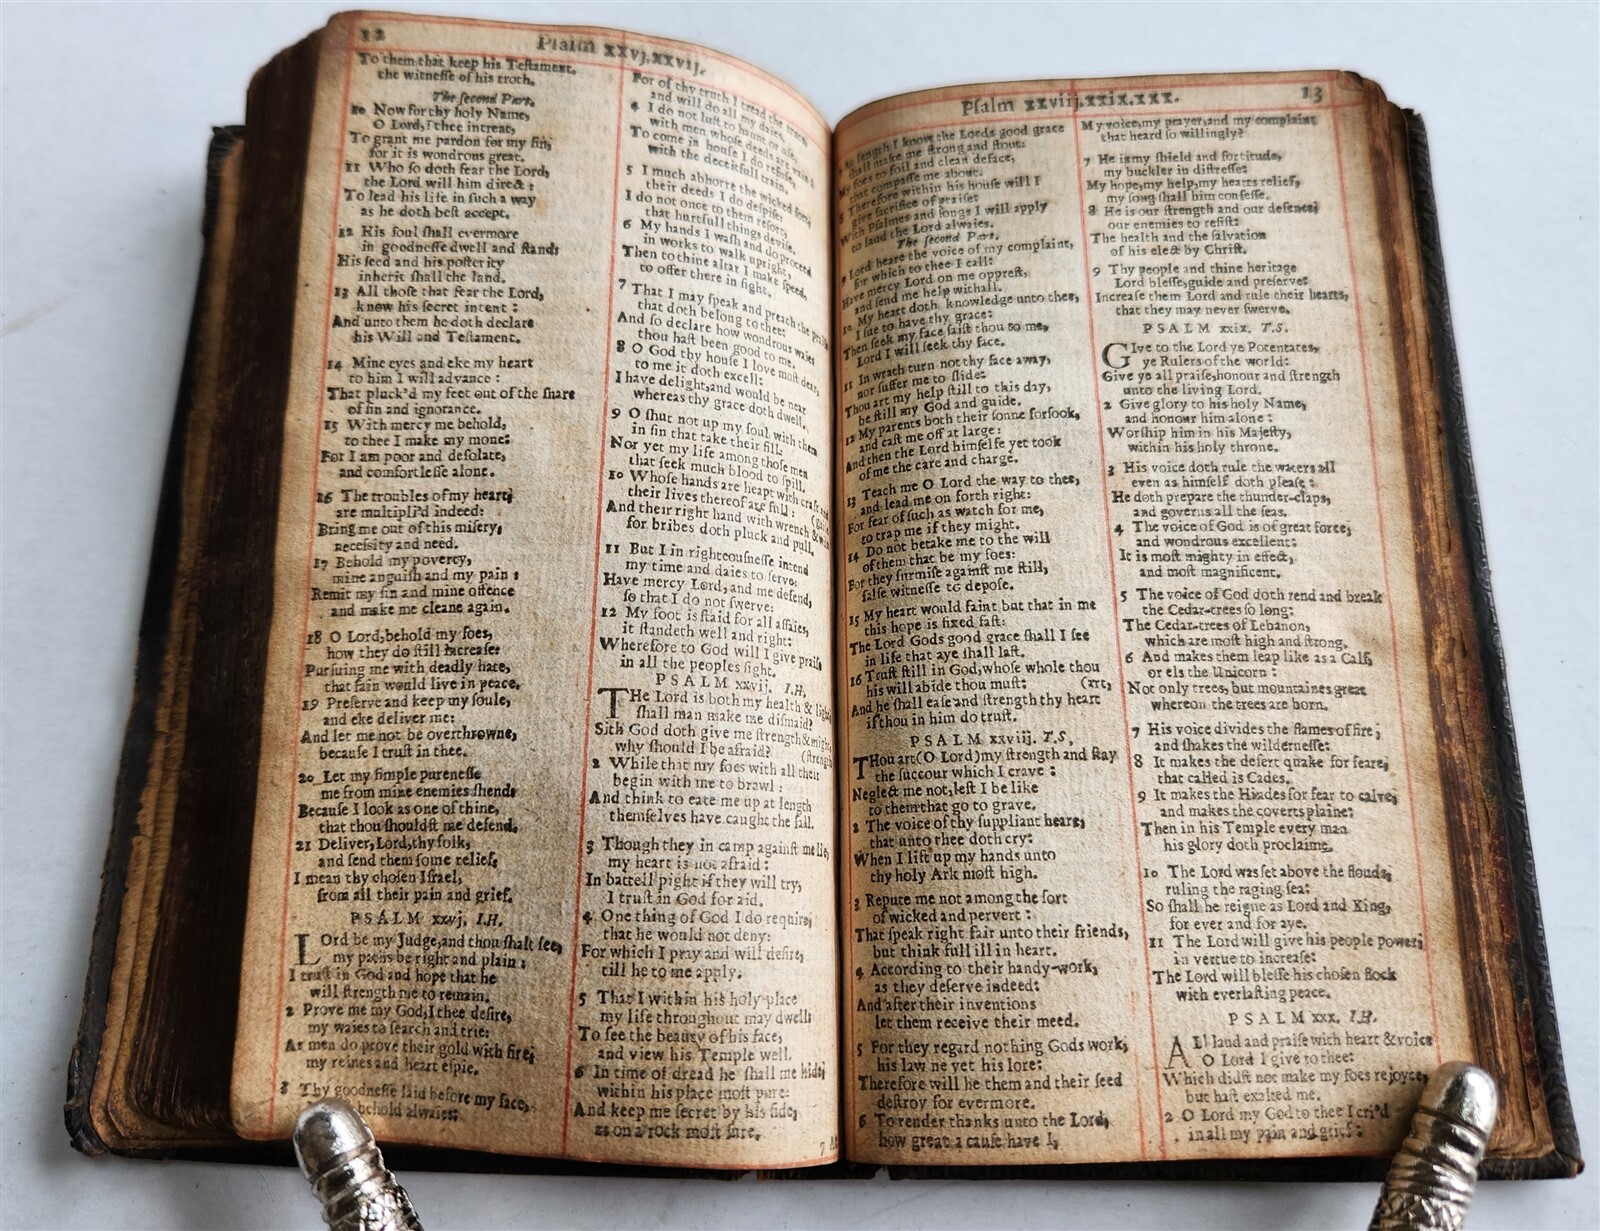 12
Psalm xxvj.xxvij.
To them that keep his Testament,
the witnesse of his troth.
The second Part.
10 Now for thy holy Name,
O Lord, I thee intreat,
To grant me pardon for my sin,
for it is wondrous great.
11 Who so doth fear the Lord,
the Lord will him direct:
To lead his life in such a way
as he doth best accept.
12 His soul shall evermore
in goodnesse dwell and stand:
His seed and his posterity
inherit shall the land.
13 All those that fear the Lord,
know his secret intent:
And unto them he doth declare
his Will and Testament.
14 Mine eyes and eke my heart
to him I will advance:
That pluck'd my feet out of the snare
of sin and ignorance.
15 With mercy me behold,
to thee I make my mone:
For I am poor and desolate,
and comfortlesse alone.
16 The troubles of my heart,
are multipli'd indeed:
Bring me out of this misery,
necessity and need.
17 Behold my poverty,
mine anguish and my pain:
Remit my sin and mine offence
and make me cleane again.
18 O Lord, behold my foes,
how they do still increase:
Pursuing me with deadly hate,
that fain would live in peace.
19 Preserve and keep my soule,
and eke deliver me:
And let me not be overthrowne,
because I trust in thee.
20 Let my simple purenesse
me from mine enemies shend:
Because I look as one of thine,
that thou shouldst me defend.
21 Deliver, Lord, thy folk,
and send them some relief,
I mean thy chosen Israel,
from all their pain and grief.
PSALM xxvj. I.H.
LOrd be my Judge, and thou shalt see,
my paths be right and plain:
I trust in God and hope that he
will strength me to remain.
2 Prove me my God, I thee desire,
my waies to search and trie:
As men do prove their gold with fire;
my reines and heart espie.
3 Thy goodnesse laid before my face,
behold alwaies:
For of thy truth I tread the trace
and will do all my daies.
4 I do not lust to haunt or use,
with men whose deeds are vain:
To come in house I do refuse,
with the deceitfull train.
5 I much abhorre the wicked sort,
their deeds I do despise:
I do not once to them resort,
that hurtfull things devise.
6 My hands I wash and do proceed
in works to walk upright,
Then to thine altar I make speed,
to offer there in sight.
7 That I may speak and preach the praise
that doth belong to thee:
And so declare how wondrous waies
thou hast been good to me.
8 O God thy house I love most dear,
to me it doth excell:
I have delight, and would be near
whereas thy grace doth dwell.
9 O shut not up my soul with them
in sin that take their fill.
Nor yet my life among those men
that seek much blood to spill.
10 Whose hands are heapt with craft and
their lives thereof are full:
And their right hand with wrench &
for bribes doth pluck and pull.
11 But I in righteousnesse intend
my time and daies to serve:
Have mercy Lord, and me defend,
so that I do not swerve:
12 My foot is staid for all assaies,
it standeth well and right:
Wherefore to God will I give praise
in all the peoples sight.
PSALM xxvij. I.H.
THe Lord is both my health & light
shall man make me dismaid?
Sith God doth give me strength & might
why should I be afraid? (strength
2 While that my foes with all their
begin with me to brawl:
And think to eate me up at length
themselves have caught the fall.
3 Though they in camp against me lie,
my heart is not afraid:
In battell pight if they will try,
I trust in God for aid.
4 One thing of God I do require,
that he would not deny:
For which I pray and will desire,
till he to me apply.
5 That I within his holy place
my life throughout may dwell:
To see the beauty of his face,
and view his Temple well.
6 In time of dread he shall me hide,
within his place most pure:
And keep me secret by his side,
as on a rock most sure.
Psalm xxviij.xxix.xxx.
13
length I know the Lords good grace
shall make me strong and stout:
My foes to foil and clean deface,
that compasse me about.
8 Therefore within his house will I
give sacrifice of praise:
With Psalmes and songs I will apply
to laud the Lord alwaies.
The second Part.
9 Lord heare the voice of my complaint,
for which to thee I call:
Have mercy Lord on me opprest,
and send me help withall.
10 My heart doth knowledge unto thee,
I sue to have thy grace:
Then seek my face saist thou to me,
Lord I will seek thy face.
11 In wrath turn not thy face away,
nor suffer me to slide:
Thou art my help still to this day,
be still my God and guide.
12 My parents both their sonne forsook,
and cast me off at large:
And then the Lord himselfe yet took
of me the care and charge.
13 Teach me O Lord the way to thee,
and lead me on forth right:
For fear of such as watch for me,
to trap me if they might.
14 Do not betake me to the will
of them that be my foes:
For they surmise against me still,
false witnesse to depose.
15 My heart would faint but that in me
this hope is fixed fast:
The Lord Gods good grace shall I see
in life that aye shall last.
16 Trust still in God, whose whole thou
his will abide thou must: (art,
And he shall ease and strength thy heart
if thou in him do trust.
PSALM xxviij. T.S.
THou art (O Lord) my strength and stay
the succour which I crave:
Neglect me not, lest I be like
to them that go to grave.
2 The voice of thy suppliant heare,
that unto thee doth cry:
When I lift up my hands unto
thy holy Ark most high.
3 Repute me not among the sort
of wicked and pervert:
That speak right fair unto their friends,
but think full ill in heart.
4 According to their handy-work,
as they deserve indeed:
And after their inventions
let them receive their meed.
5 For they regard nothing Gods work,
his law ne yet his lore:
Therefore will he them and their seed
destroy for evermore.
6 To render thanks unto the Lord,
how great a cause have I,
My voice, my prayer, and my complaint
that heard so willingly?
7 He is my shield and fortitude,
my buckler in distresse:
My hope, my help, my hearts relief,
my song shall him confesse.
8 He is our strength and our defence;
our enemies to resist:
The health and the salvation
of his elect by Christ.
9 Thy people and thine heritage
Lord blesse, guide and preserve:
Increase them Lord and rule their hearts,
that they may never swerve.
PSALM xxix. T.S.
GIve to the Lord ye Potentates,
ye Rulers of the world:
Give ye all praise, honour and strength
unto the living Lord.
2 Give glory to his holy Name,
and honour him alone:
Worship him in his Majesty,
within his holy throne.
3 His voice doth rule the waters all
even as himself doth please:
He doth prepare the thunder-claps,
and governs all the seas.
4 The voice of God is of great force;
and wondrous excellent:
It is most mighty in effect,
and most magnificent.
5 The voice of God doth rend and break
the Cedar-trees so long:
The Cedar-trees of Lebanon,
which are most high and strong.
6 And makes them leap like as a Calf,
or els the Unicorn:
Not only trees, but mountaines great
whereon the trees are born.
7 His voice divides the flames of fire;
and shakes the wildernesse:
8 It makes the desert quake for feare;
that called is Cades.
9 It makes the Hindes for fear to calve;
and makes the coverts plaine:
Then in his Temple every man
his glory doth proclaime.
10 The Lord was set above the flouds,
ruling the raging sea:
So shall he reigne as Lord and King,
for ever and for aye.
11 The Lord will give his people power;
in vertue to increase:
The Lord will blesse his chosen flock
with everlasting peace.
PSALM xxx. I.H.
ALl laud and praise with heart & voice
O Lord I give to thee:
Which didst not make my foes rejoyce,
but hast exalted me.
2 O Lord my God to thee I cri'd
in all my pain and grief: